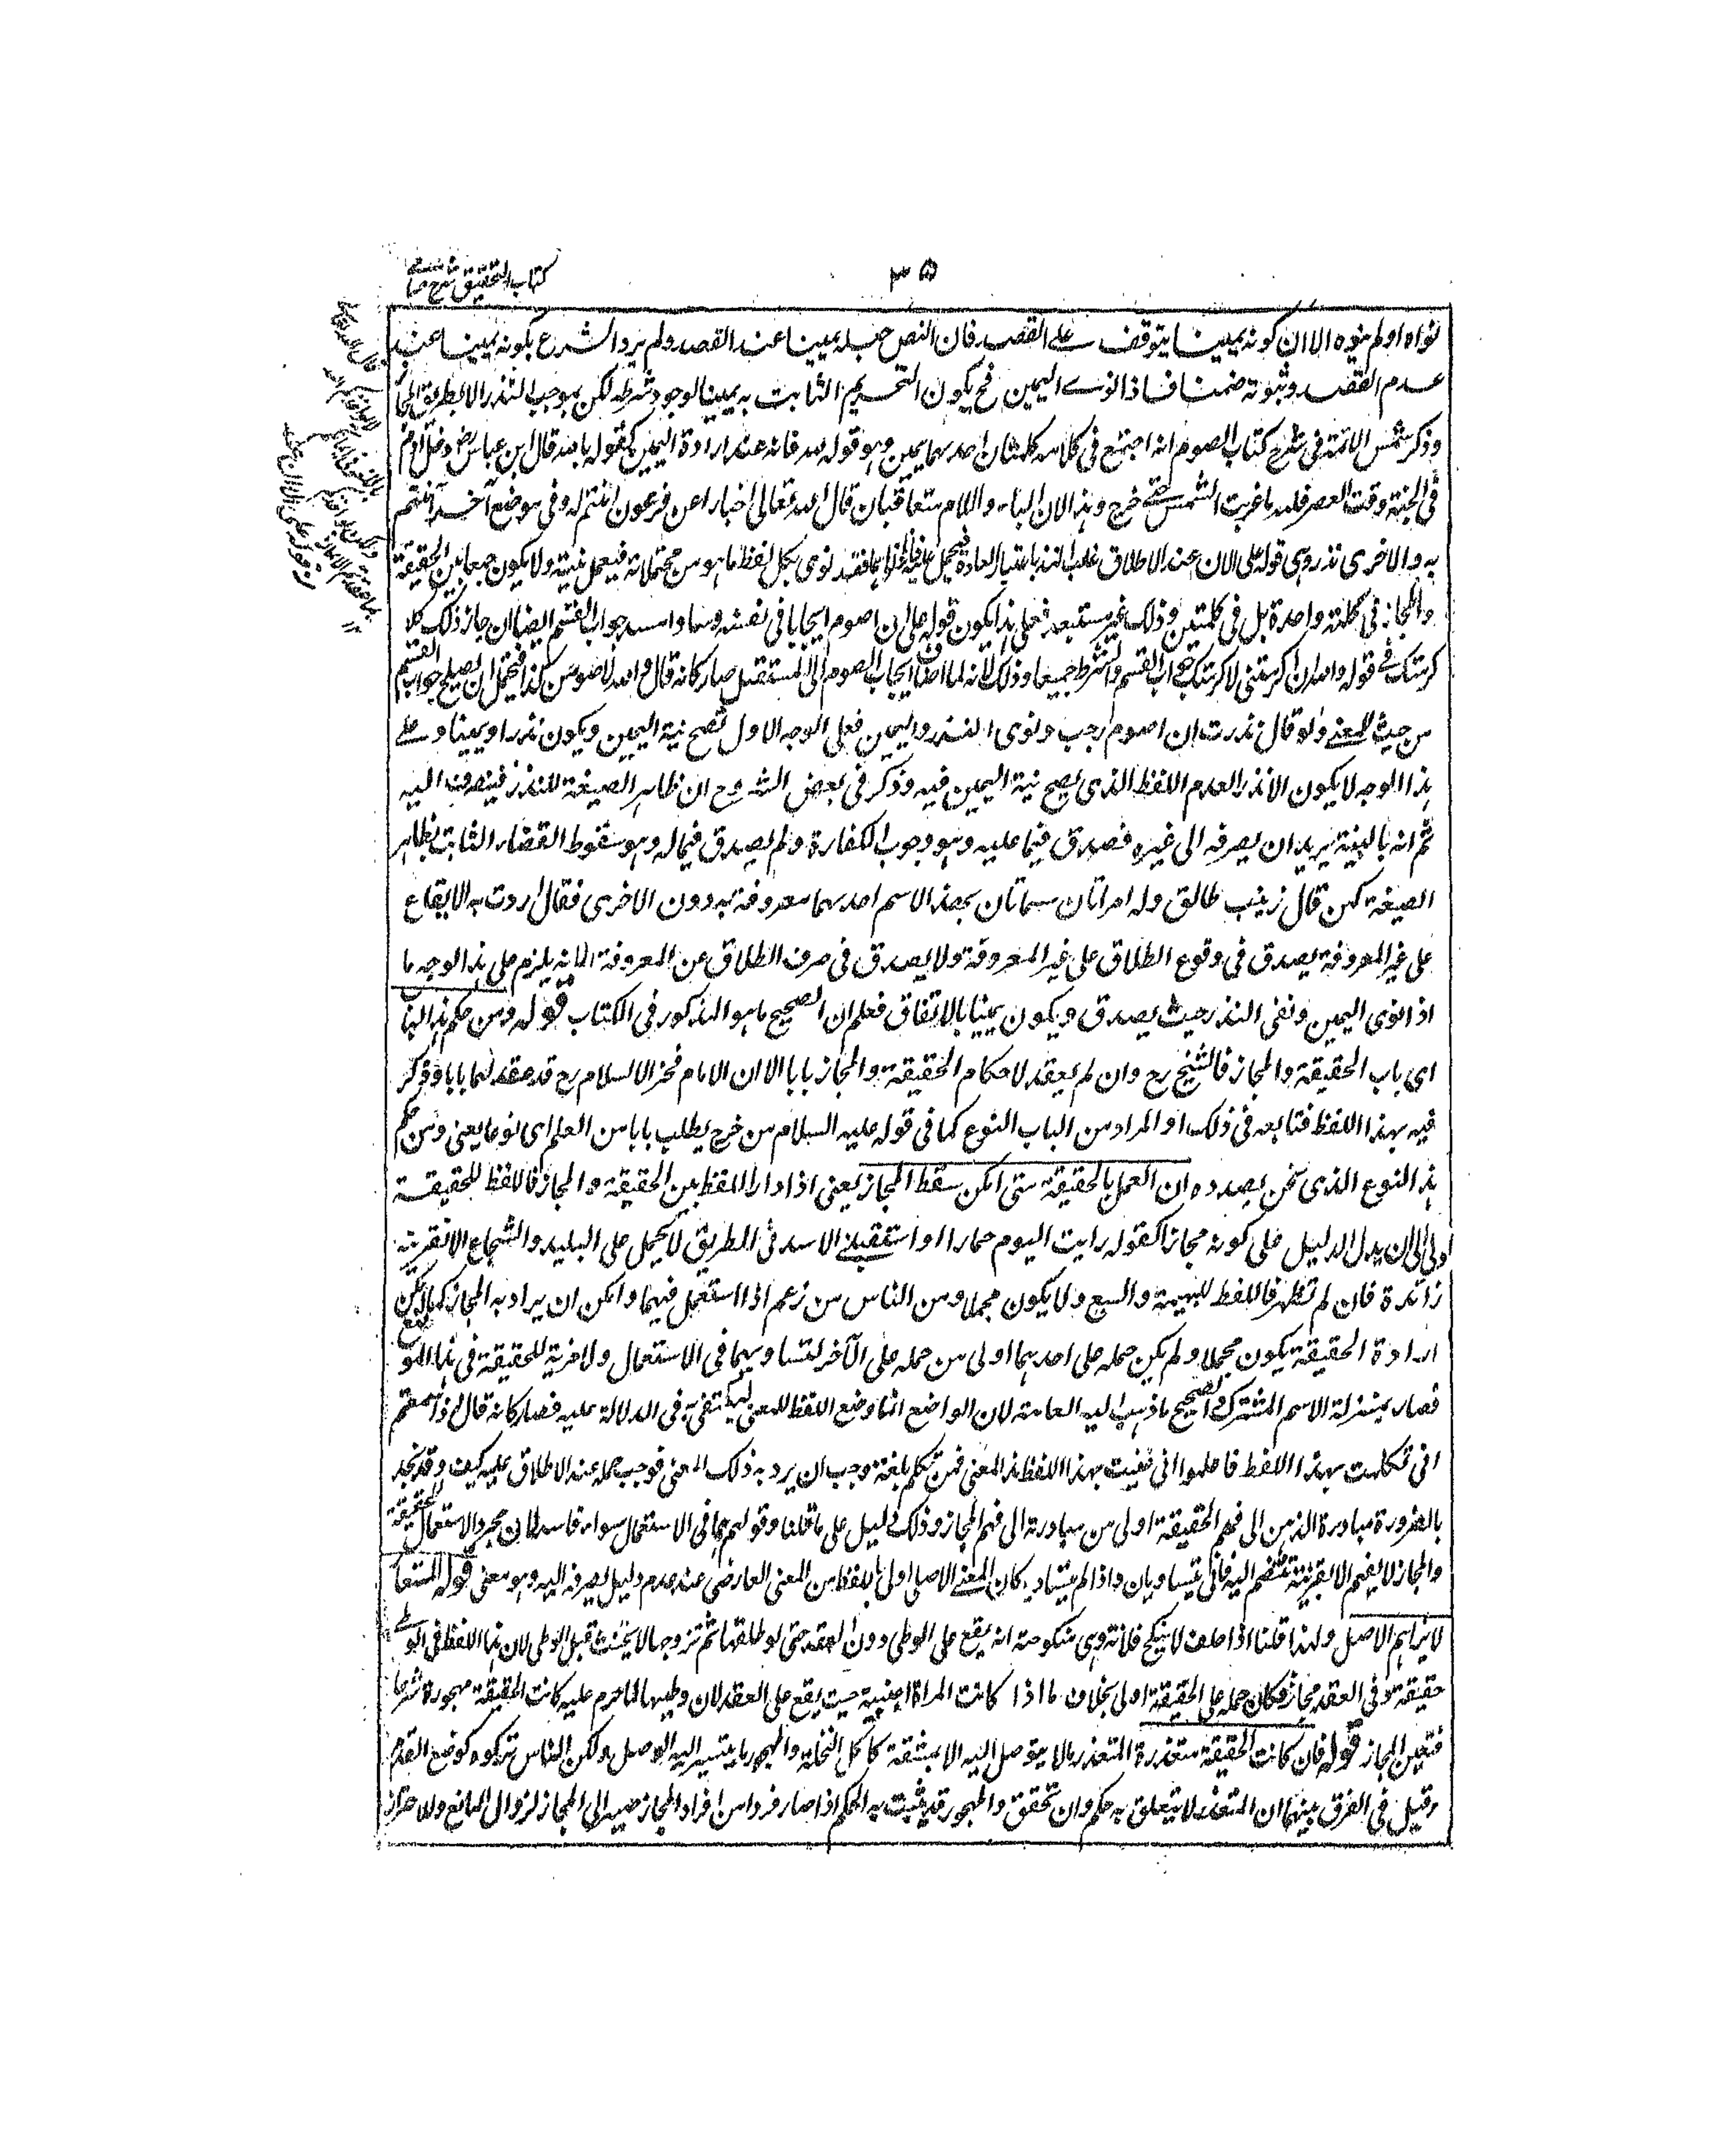 كتاب التحقيق شرح حسامي
٣٥
نواه او لم ينوه الا ان كونه يمينا يتوقف على القصد فان النص جعله يمينا عند القصد ولم يرد الشرع بكونه يمينا عند
عدم القصد وثبوته ضمنا فاذا نوى اليمين فح يكون التحريم الثابت به يمينا لوجود شرطه لكن بموجب النذر لا بطريق المجاز
وذكر شمس الائمة في شرح كتاب الصوم انه اجتمع في كلامه كلمتان احدهما يمين وهو قوله لله فانه عند ارادة اليمين كقوله بالله قال ابن عباس رض دخل آدم
في الجنة وقت العصر فلله ما غربت الشمس حتى خرج وهذا لان الباء واللام متعاقبان قال الله تعالى اخبارا عن فرعون آمنتم له وفي موضع آخر آمنتم
به والاخرى نذر وهي قوله على الا ان عند الاطلاق غلب النذر باعتبار العادة فيحمل عليه فاذا نواهما فقد نوى بكل لفظ ما هو من محتملاته فيعمل نيته ولا يكون جمعا بين الحقيقة
والمجاز في كلمة واحدة بل في كلمتين وذلك غير مستبعد فعلى هذا يكون قوله على ان اصوم ايجابا في نفسه وسادا مسد جواب القسم ايضا ان جاز ذلك كلا
كرمتك في قوله والله ان اكرمتني لاكرمتك جواب القسم والشرط جميعا وذلك لانه لما اضاف ايجاب الصوم الى المستقبل صار كانه قال والله لاصومن كذا فيحتمل ان يصلح جواب القسم
من حيث المعنى ولو قال نذرت ان اصوم رجب ونوى النذر واليمين فعلى الوجه الاول تصح نية اليمين ويكون نذرا ويمينا وعلى
هذا الوجه لا يكون الا نذرا لعدم اللفظ الذي يصح نية اليمين فيه وذكر في بعض الشروح ان ظاهر الصيغة للنذر فينصرف اليه
ثم انه بالنية يريد ان يصرفه الى غيره فصدق فيما عليه وهو وجوب الكفارة ولم يصدق فيما له وهو سقوط القضاء الثابت بظاهر
الصيغة كمن قال زينب طالق وله امراتان مسماتان بهذا الاسم احدهما معروفة به دون الاخرى فقال اردت به الايقاع
على غير المعروفة يصدق في وقوع الطلاق على غير المعروفة ولا يصدق في صرف الطلاق عن المعروفة الا انه يلزم على هذا الوجه ما
اذا نوى اليمين ونفى النذر حيث يصدق ويكون يمينا بالاتفاق فعلم ان الصحيح ما هو المذكور في الكتاب قوله ومن حكم هذا الباب
اى باب الحقيقة والمجاز فالشيخ رح وان لم يعقد لاحكام الحقيقة والمجاز بابا الا ان الامام فخر الاسلام رح قد عقد لهما بابا وذكر
فيه بهذا اللفظ فتابعه في ذلك او المراد من الباب النوع كما في قوله عليه السلام من خرج يطلب بابا من العلم اى نوعا يعني ومن حكم
هذا النوع الذي نحن بصدده ان العمل بالحقيقة متى امكن سقط المجاز يعني اذا دار اللفظ بين الحقيقة والمجاز فاللفظ للحقيقة
اولى الى ان يدل الدليل على كونه مجازا كقوله رايت اليوم حمارا او استقبلني الاسد في الطريق لا يحمل على البليد والشجاع الا بقرينة
زائدة فان لم تظهر فاللفظ للبهيمة والسبع ولا يكون مجملا ومن الناس من زعم اذا استعمل فيهما وامكن ان يراد به المجاز كما امكن
ارادة الحقيقة يكون مجملا ولم يكن حمله على احدهما اولى من حمله على الآخر لتساويهما في الاستعمال ولا مزية للحقيقة في هذا النوع
فصار بمنزلة الاسم المشترك والصحيح ما ذهب اليه العامة لان الواضع انما وضع اللفظ للمعنى ليكتفى به في الدلالة عليه فصار كانه قال اذا سمعتم
اني تكلمت بهذا اللفظ فاعلموا اني عنيت بهذا اللفظ هذا المعنى فمن تكلم بلغته وجب ان يريد به ذلك المعنى فوجب حمله عند الاطلاق عليه كيف وقد نجد
بالضرورة مبادرة الذهن الى فهم الحقيقة اولى من مبادرته الى فهم المجاز وذلك دليل على ما قلنا وقولهم هما في الاستعمال سواء فاسد لان مجرد الاستعمال للحقيقة
والمجاز لا يفهم الا بقرينة تنضم اليه فانى يتساويان واذا لم يتساويا كان المعنى الاصلي اولى باللفظ من المعنى العارضي عند عدم دليل يصرفه اليه وهو معنى قوله المستعار
لا يزاحم الاصل ولهذا قلنا اذا حلف لا ينكح فلانة وهي منكوحته انه يقع على الوطي دون العقد حتى لو طلقها ثم تزوجها لا يحنث قبل الوطي لان هذا اللفظ في الوطي
حقيقة وفي العقد مجاز فكان حمله على الحقيقة اولى بخلاف ما اذا كانت المراة اجنبية حيث يقع على العقد لان وطيها لما حرم عليه كانت الحقيقة مهجورة شرعا
فتعين المجاز قوله فان كانت الحقيقة متعذرة المتعذر ما لا يتوصل اليه الا بمشقة كاكل النخلة والمهجور ما يتيسر اليه الوصل ولكن الناس تركوه كوضع القدم
وقيل في الفرق بينهما ان المتعذر لا يتعلق به حكم وان تحقق والمهجور قد يثبت به الحكم اذا صار فردا من افراد المجاز صير الى المجاز لزوال المانع وللاحتراز